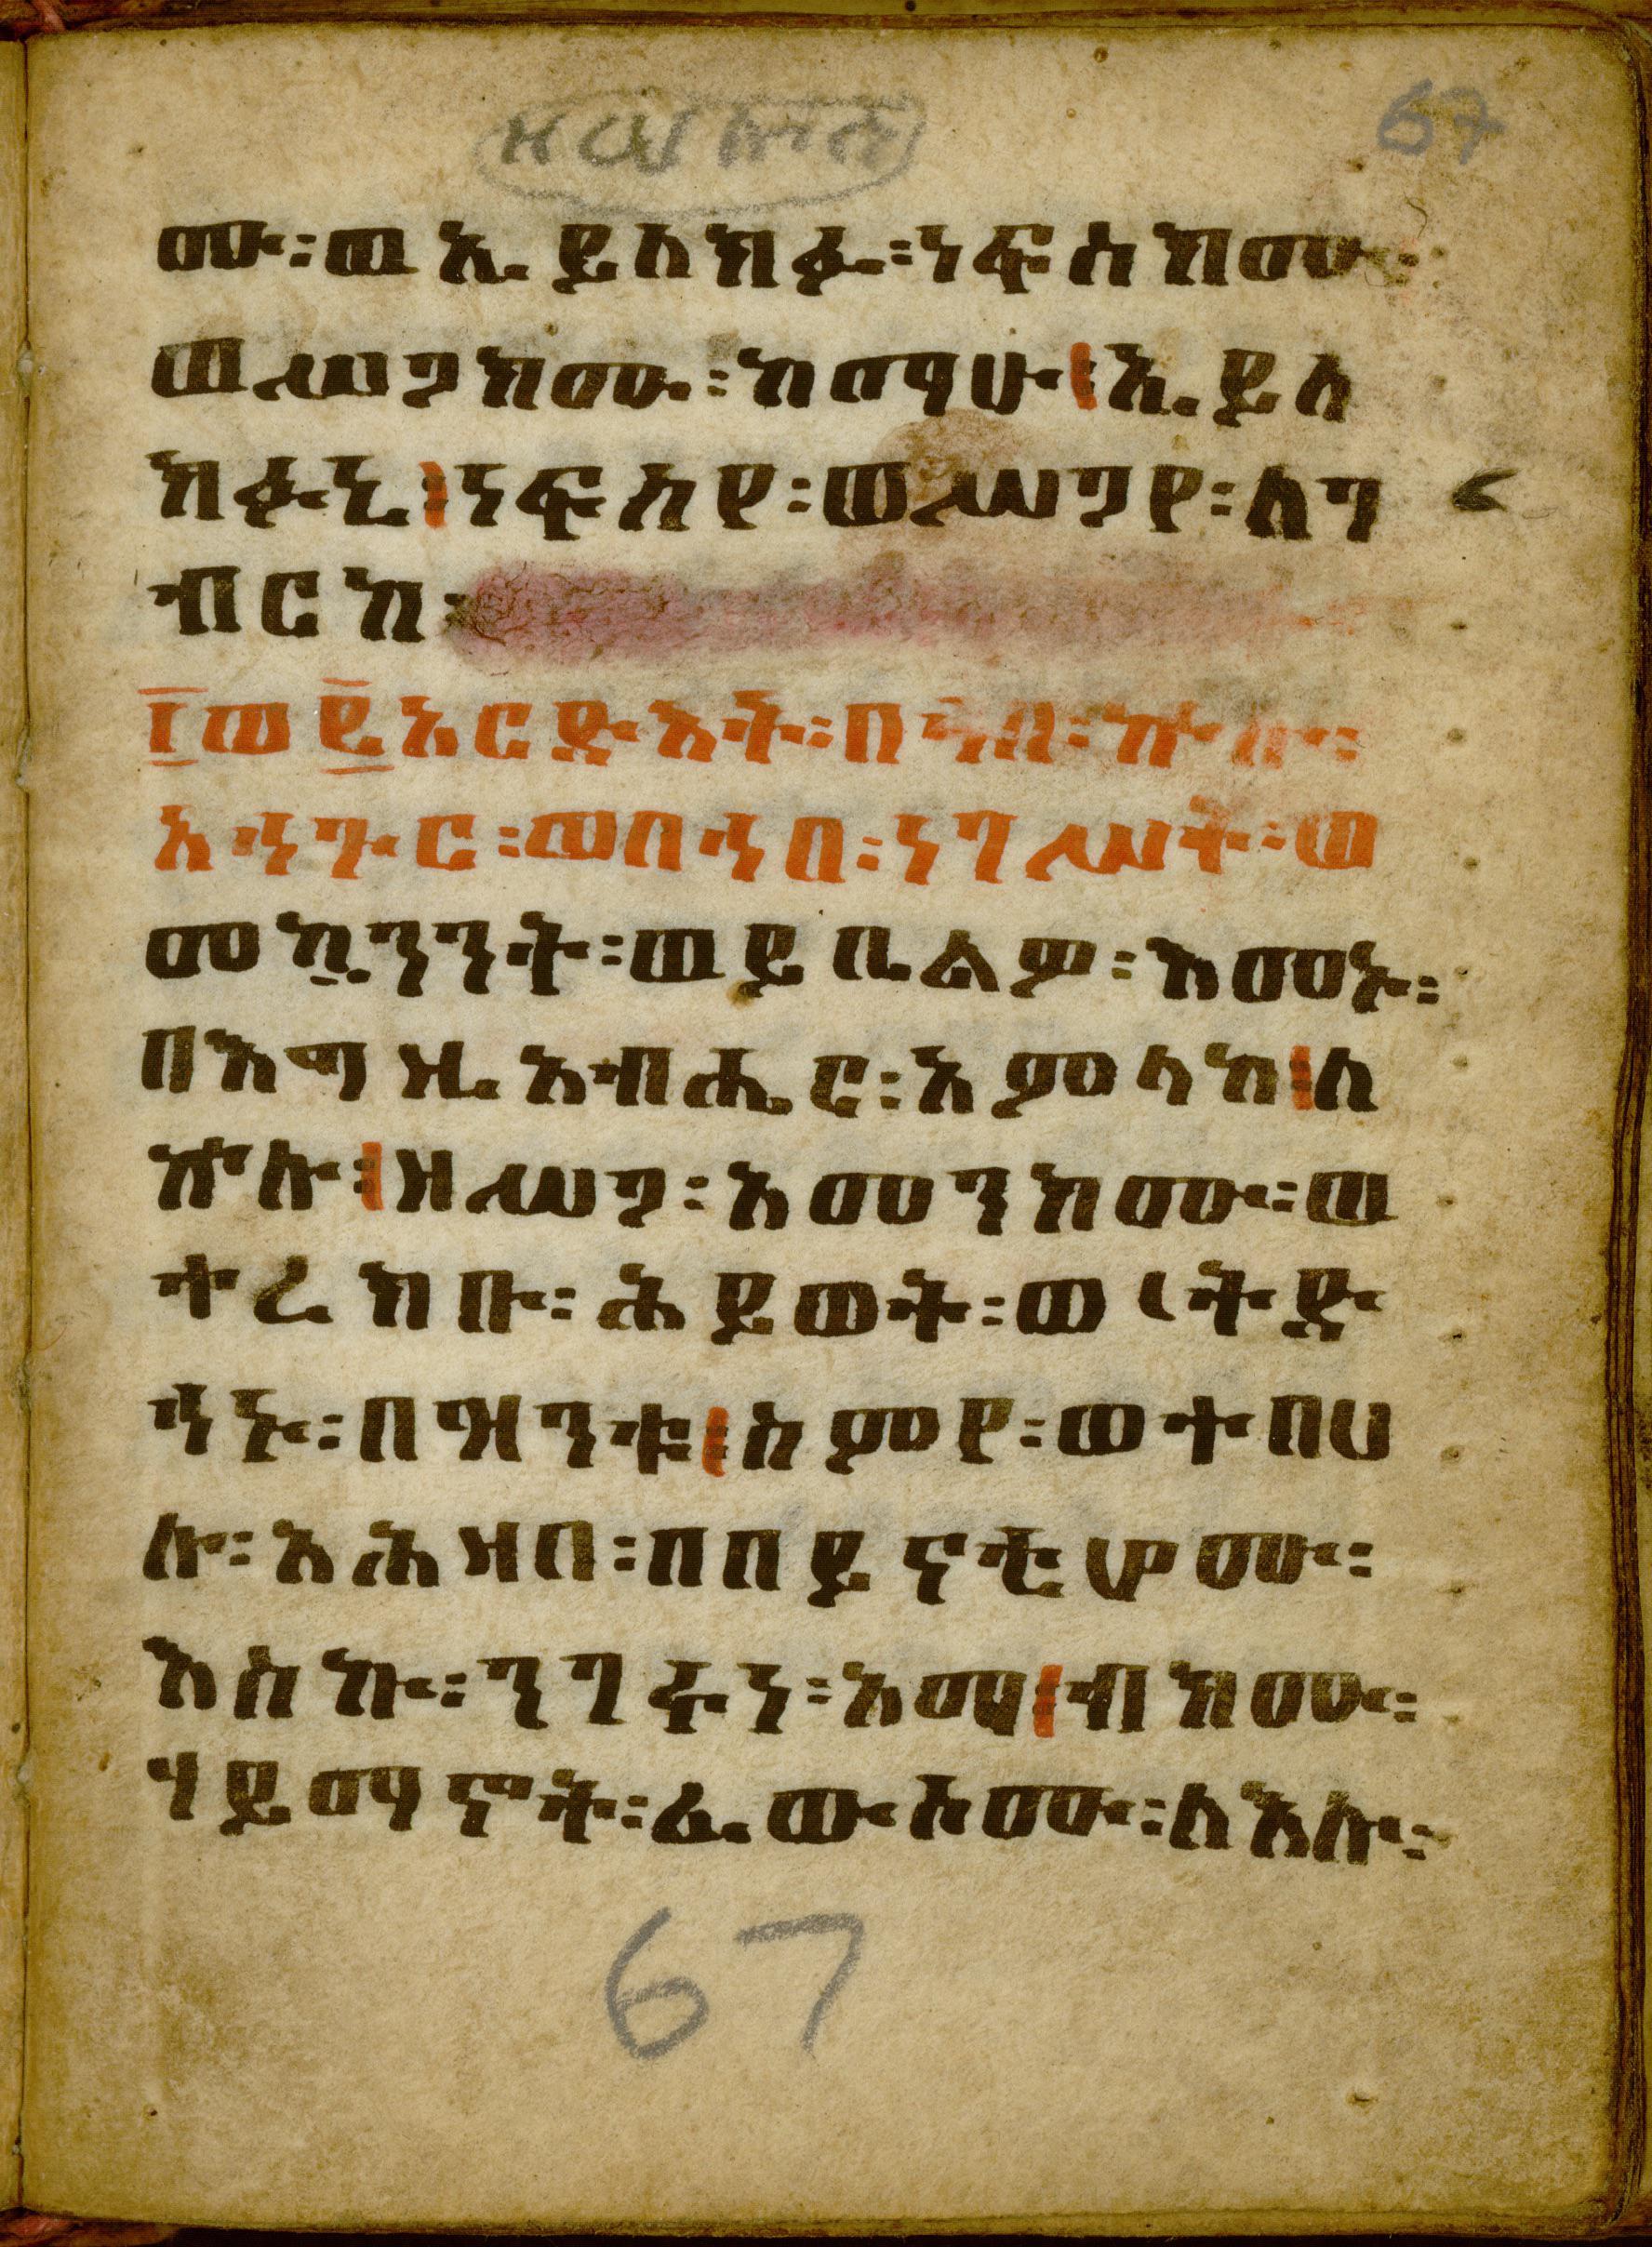 67
ሙ፡ወኢይለክፉ፡ነፍስክሙ፡
ወሥጋክሙ፡ከማሁ፡ኢይለ
ክፉኒ፡ነፍስየ፡ወሥጋየ፡ለግ
ብርከ፡
፲ወ፪አርድእት፡በኀበ፡ኵሉ፡
አኅጉር፡ወበኀበ፡ነገሥት፡ወ
መኳንንት፡ወይቤልዎ፡እመኑ፡
በእግዚአብሔር፡አምላከ፡ለ
ኵሉ፡ዘሥጋ፡አመንክሙ፡ወ
ተረክቡ፡ሕይወት፡ወኢትድ
ኅኑ፡በዝንቱ፡ስምየ፡ወተበሀ
ሉ፡አሕዛብ፡በበይናቲሆሙ፡
እስኩ፡ንግሩነ፡እማ፡ብክሙ፡
ሃይማኖት፡ፈውስሙ፡ለእሉ፡
67